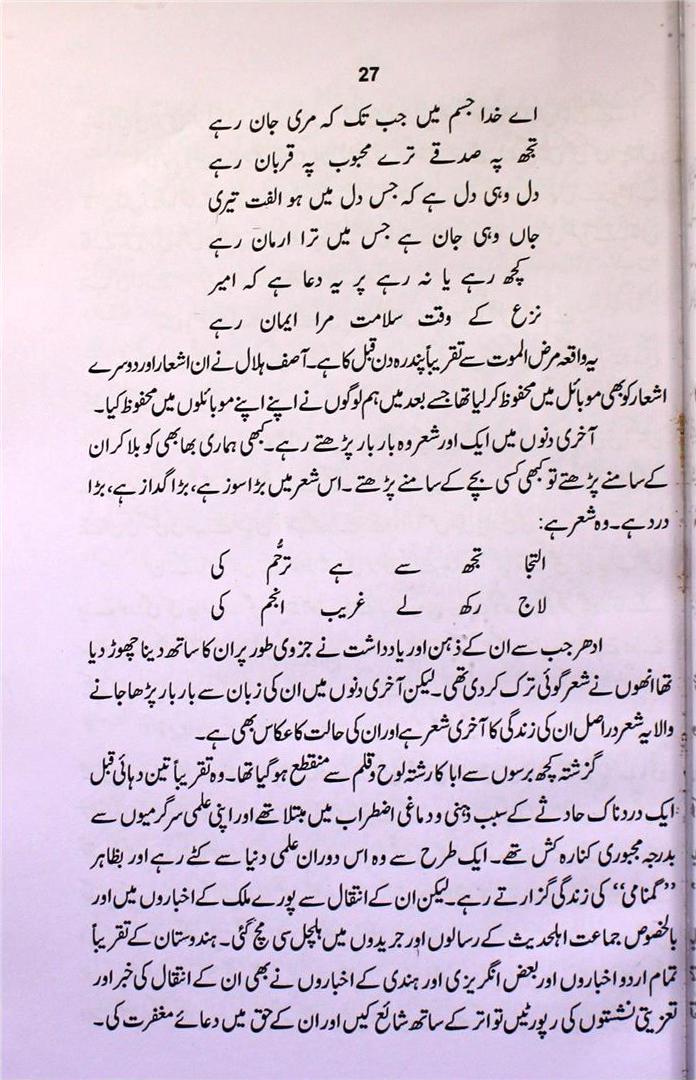 27
اے خدا جسم میں جب تک کہ مری جان رہے
تجھ پہ صدقے ترے محبوب پہ قربان رہے
دل وہی دل ہے کہ جس دل میں ہو الفت تیری
جاں وہی جان ہے جس میں ترا ارمان رہے
کچھ رہے یا نہ رہے پر یہ دعا ہے کہ امیر
نزع کے وقت سلامت مرا ایمان رہے
یہ واقعہ مرض الموت سے تقریباً پندرہ دن قبل کا ہے۔ آصف ہلال نے ان اشعار اور دوسرے
اشعار کو بھی موبائل میں محفوظ کر لیا تھا جسے بعد میں ہم لوگوں نے اپنے اپنے موبائلوں میں محفوظ کیا۔
آخری دنوں میں ایک اور شعر وہ بار بار پڑھتے رہے۔ کبھی ہماری بھابھی کو بلا کر ان
کے سامنے پڑھتے تو کبھی کسی بچے کے سامنے پڑھتے۔ اس شعر میں بڑا سوز ہے، بڑا گداز ہے، بڑا
درد ہے۔ وہ شعر ہے:
التجا تجھ سے ہے ترحُّم کی
لاج رکھ لے غریب انجم کی
ادھر جب سے ان کے ذہن اور یادداشت نے جزوی طور پر ان کا ساتھ دینا چھوڑ دیا
تھا انھوں نے شعر گوئی ترک کر دی تھی۔ لیکن آخری دنوں میں ان کی زبان سے بار بار پڑھا جانے
والا یہ شعر دراصل ان کی زندگی کا آخری شعر ہے اور ان کی حالت کا عکاس بھی ہے۔
گزشتہ کچھ برسوں سے ابا کا رشتہ لوح و قلم سے منقطع ہو گیا تھا۔ وہ تقریباً تین دہائی قبل
ایک دردناک حادثے کے سبب ذہنی و دماغی اضطراب میں مبتلا تھے اور اپنی علمی سرگرمیوں سے
بدرجہ مجبوری کنارہ کش تھے۔ ایک طرح سے وہ اس دوران علمی دنیا سے کٹے رہے اور بظاہر
”گمنامی“ کی زندگی گزارتے رہے۔ لیکن ان کے انتقال سے پورے ملک کے اخباروں میں اور
بالخصوص جماعت اہلحدیث کے رسالوں اور جریدوں میں ہلچل سی مچ گئی۔ ہندوستان کے تقریباً
تمام اردو اخباروں اور بعض انگریزی اور ہندی کے اخباروں نے بھی ان کے انتقال کی خبر اور
تعزیتی نشستوں کی رپورٹیں تواتر کے ساتھ شائع کیں اور ان کے حق میں دعائے مغفرت کی۔